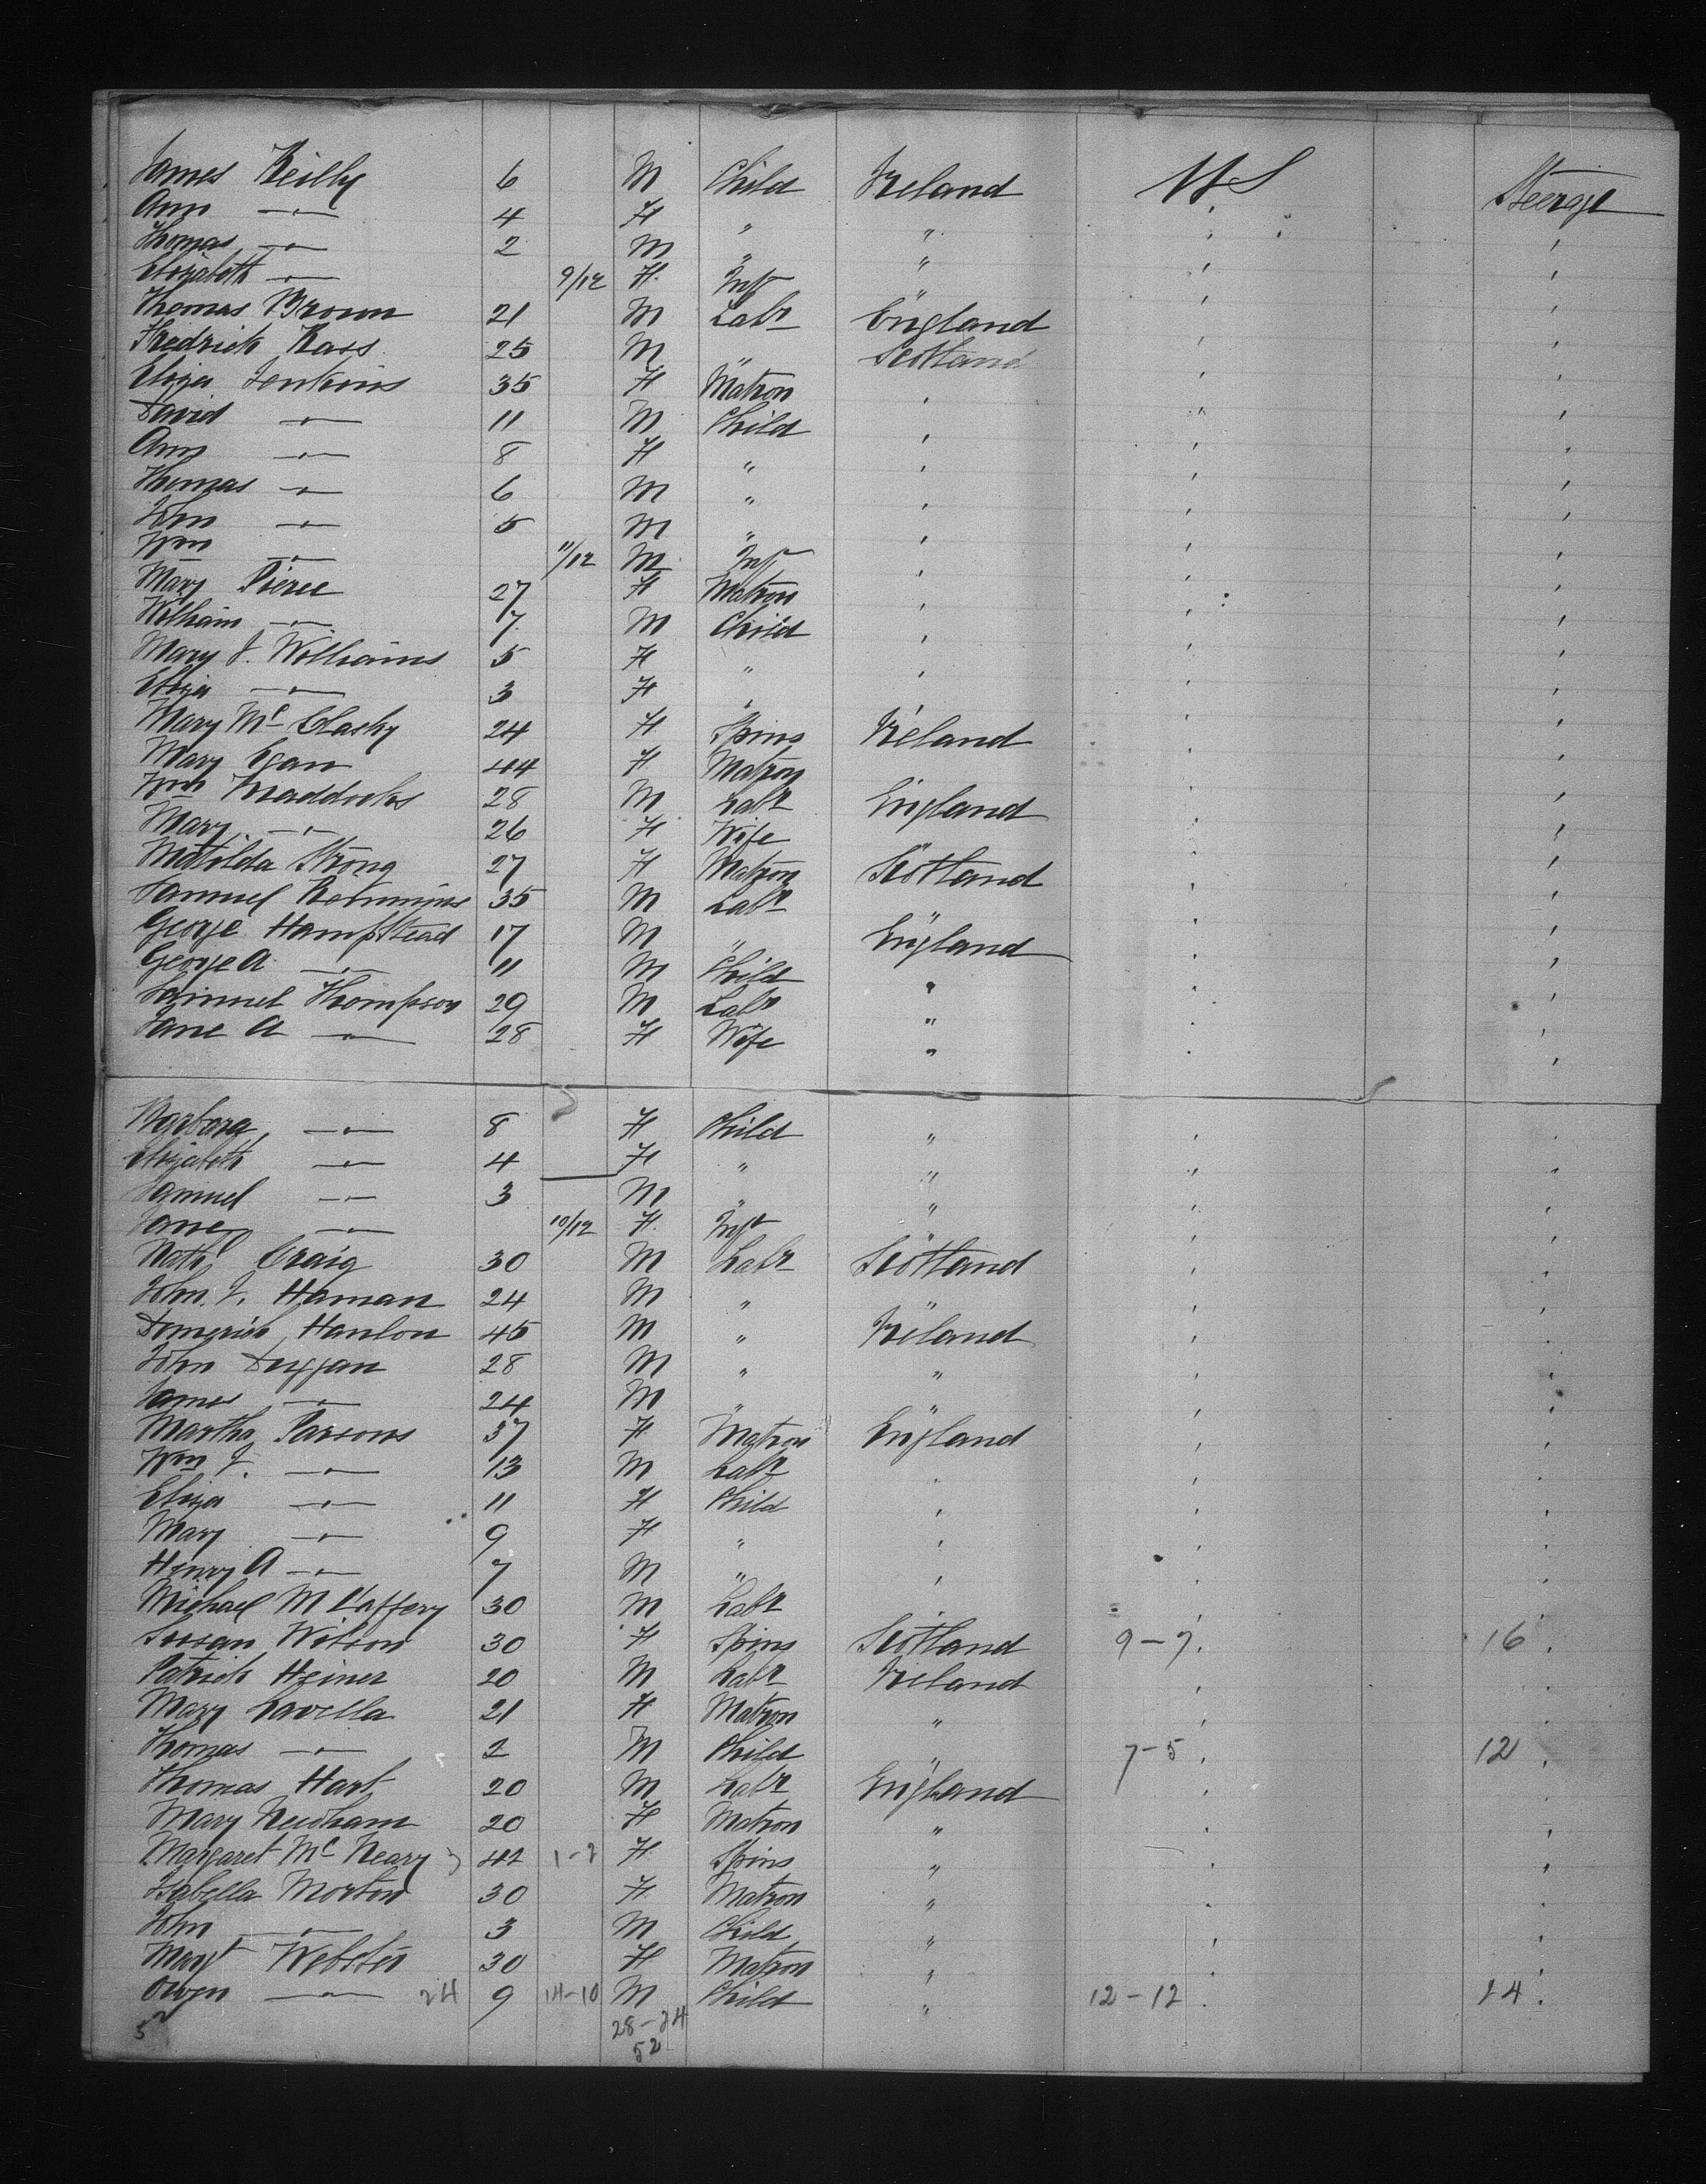 James Reilly 6 M Child Ireland U.S Steerage
Ann —"— 4 F " " " "
Thomas —"— 2 M " " " "
Elizabeth —"— 9/12 F Inft " " "
Thomas Brown 21 M Labr England " "
Fredrick Ross 25 M " Scotland " "
Eliza Jenkins 35 F Matron " " "
David —"— 11 M Child " " "
Ann —"— 8 F " " " "
Thomas —"— 6 M " " " "
John —"— 5 M " " " "
Wm —"— 11/12 M Inft " " "
Mary Pierce 27 F Matron " " "
William —"— 7 M Child " " "
Mary J. Williams 5 F " " " "
Eliza —"— 3 F " " " "
Mary Mc Clasky 24 F Spins Ireland " "
Mary Egan 44 F Matron " " "
Wm Maddocks 28 M Labr England " "
Mary —"— 26 F Wife " " "
Matilda Strong 27 F Matron Scotland " "
Samuel 35 M Labr " " "
George Hampstead 17 M " England " "
George A —"— 11 M Child " " "
Samuel Thompson 29 M Labr " " "
Jane A —"— 28 F Wife " " "
Barbara —"— 8 F Child " " "
Elizabeth —"— 4 F " " " "
Samuel —"— 3 M " " " "
Jane —"— 10/12 F Inft " " "
Nathl Craig 30 M Labr Scotland " "
John J. Haman 24 M " " " "
Domerick Hanlon 45 M " Ireland " "
John Duggan 28 M " " " "
James —"— 24 M " " " "
Martha Parsons 37 F Matron England " "
Wm J. —"— 13 M Labr " " "
Eliza —"— 11 F Child " " "
Mary —"— 9 F " " " "
Henry A —"— 7 M " " " "
Michael Mc Caffery 30 M Labr " " "
Susan Wilson 30 F Spins Scotland 9-7 " 16 "
Patrick Heiner 20 M Labr Ireland " "
Mary Lavella 21 F Matron " " "
Thomas —"— 2 M Child " 7-5 " 12 "
Thomas Hart 20 M Labr England " "
Mary Needham 20 F Matron " " "
Margaret Mc Neary 42 1-2 F Spins " " "
Isabella Morton 30 F Matron " " "
John —"— 3 M Child " " "
Margt Webster 30 F Matron " " "
Owen —"— 24 9 14-10 M Child " 12-12 " 24 "
5 28-24
52